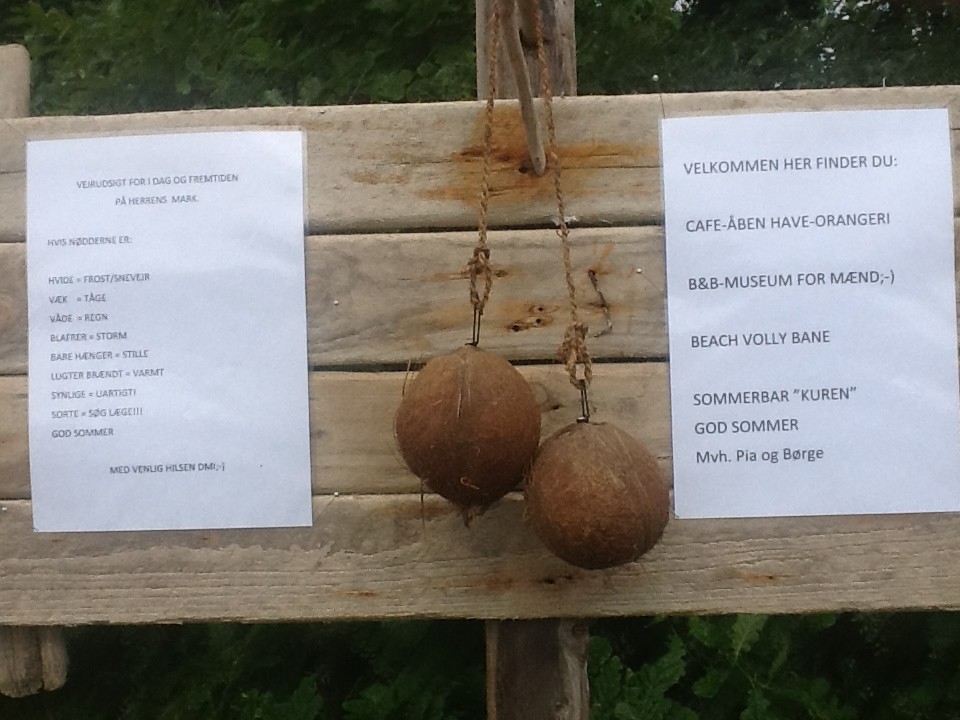 VEJRUDSIGT FOR I DAG OG FREMTIDEN
PÅ HERRENS MARK.
HVIS NØDDERNE ER:
HVIDE = FROST/SNEVEJR
VÆK = TÅGE
VÅDE = REGN
BLAFRER = STORM
BARE HÆNGER = STILLE
LUGTER BRÆNDT = VARMT
SYNLIGE = UARTIGT!
SORTE = SØG LÆGE!!!
GOD SOMMER
MED VENLIG HILSEN DMI;-)
VELKOMMEN HER FINDER DU:
CAFE-ÅBEN HAVE-ORANGERI
B&B-MUSEUM FOR MÆND;-)
BEACH VOLLY BANE
SOMMERBAR "KUREN"
GOD SOMMER
Mvh. Pia og Børge